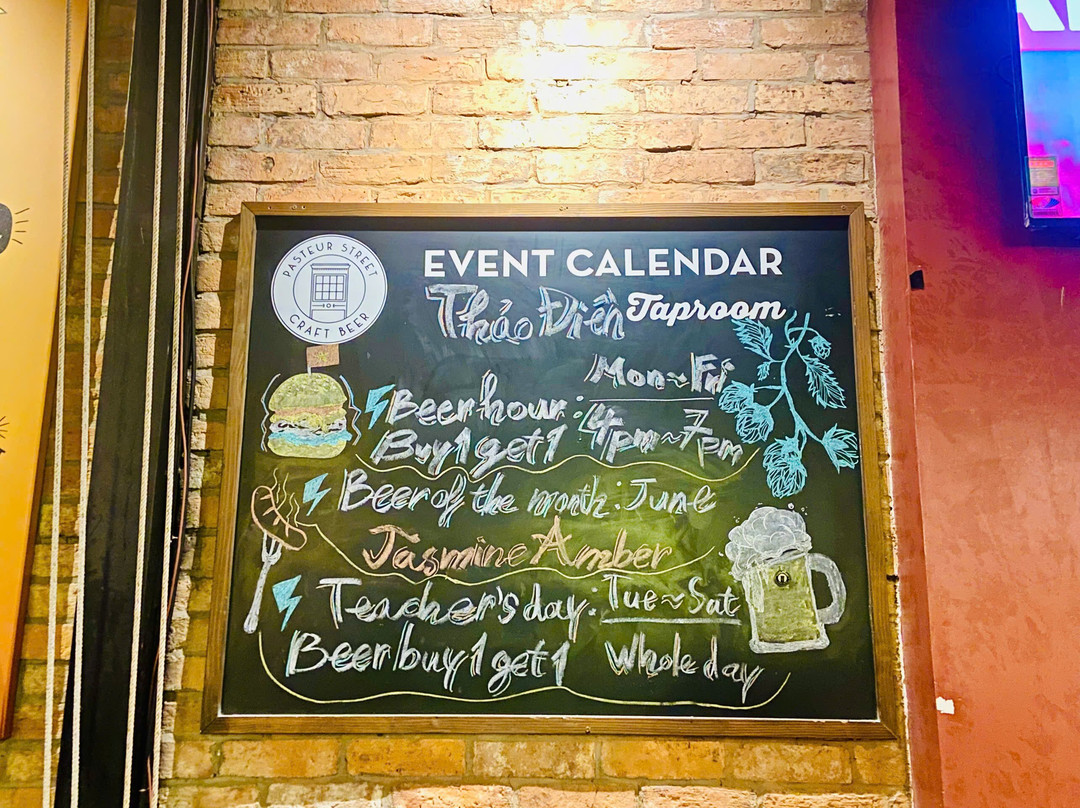 PASTEUR STREET
CRAFT BEER
EVENT CALENDAR
Thảo Điền Taproom
Mon~Fri
Beer hour: 4pm~7pm
Buy 1 get 1
Beer of the month: June
Jasmine Amber
Teacher's day: Tue~Sat
Beer buy 1 get 1 Whole day